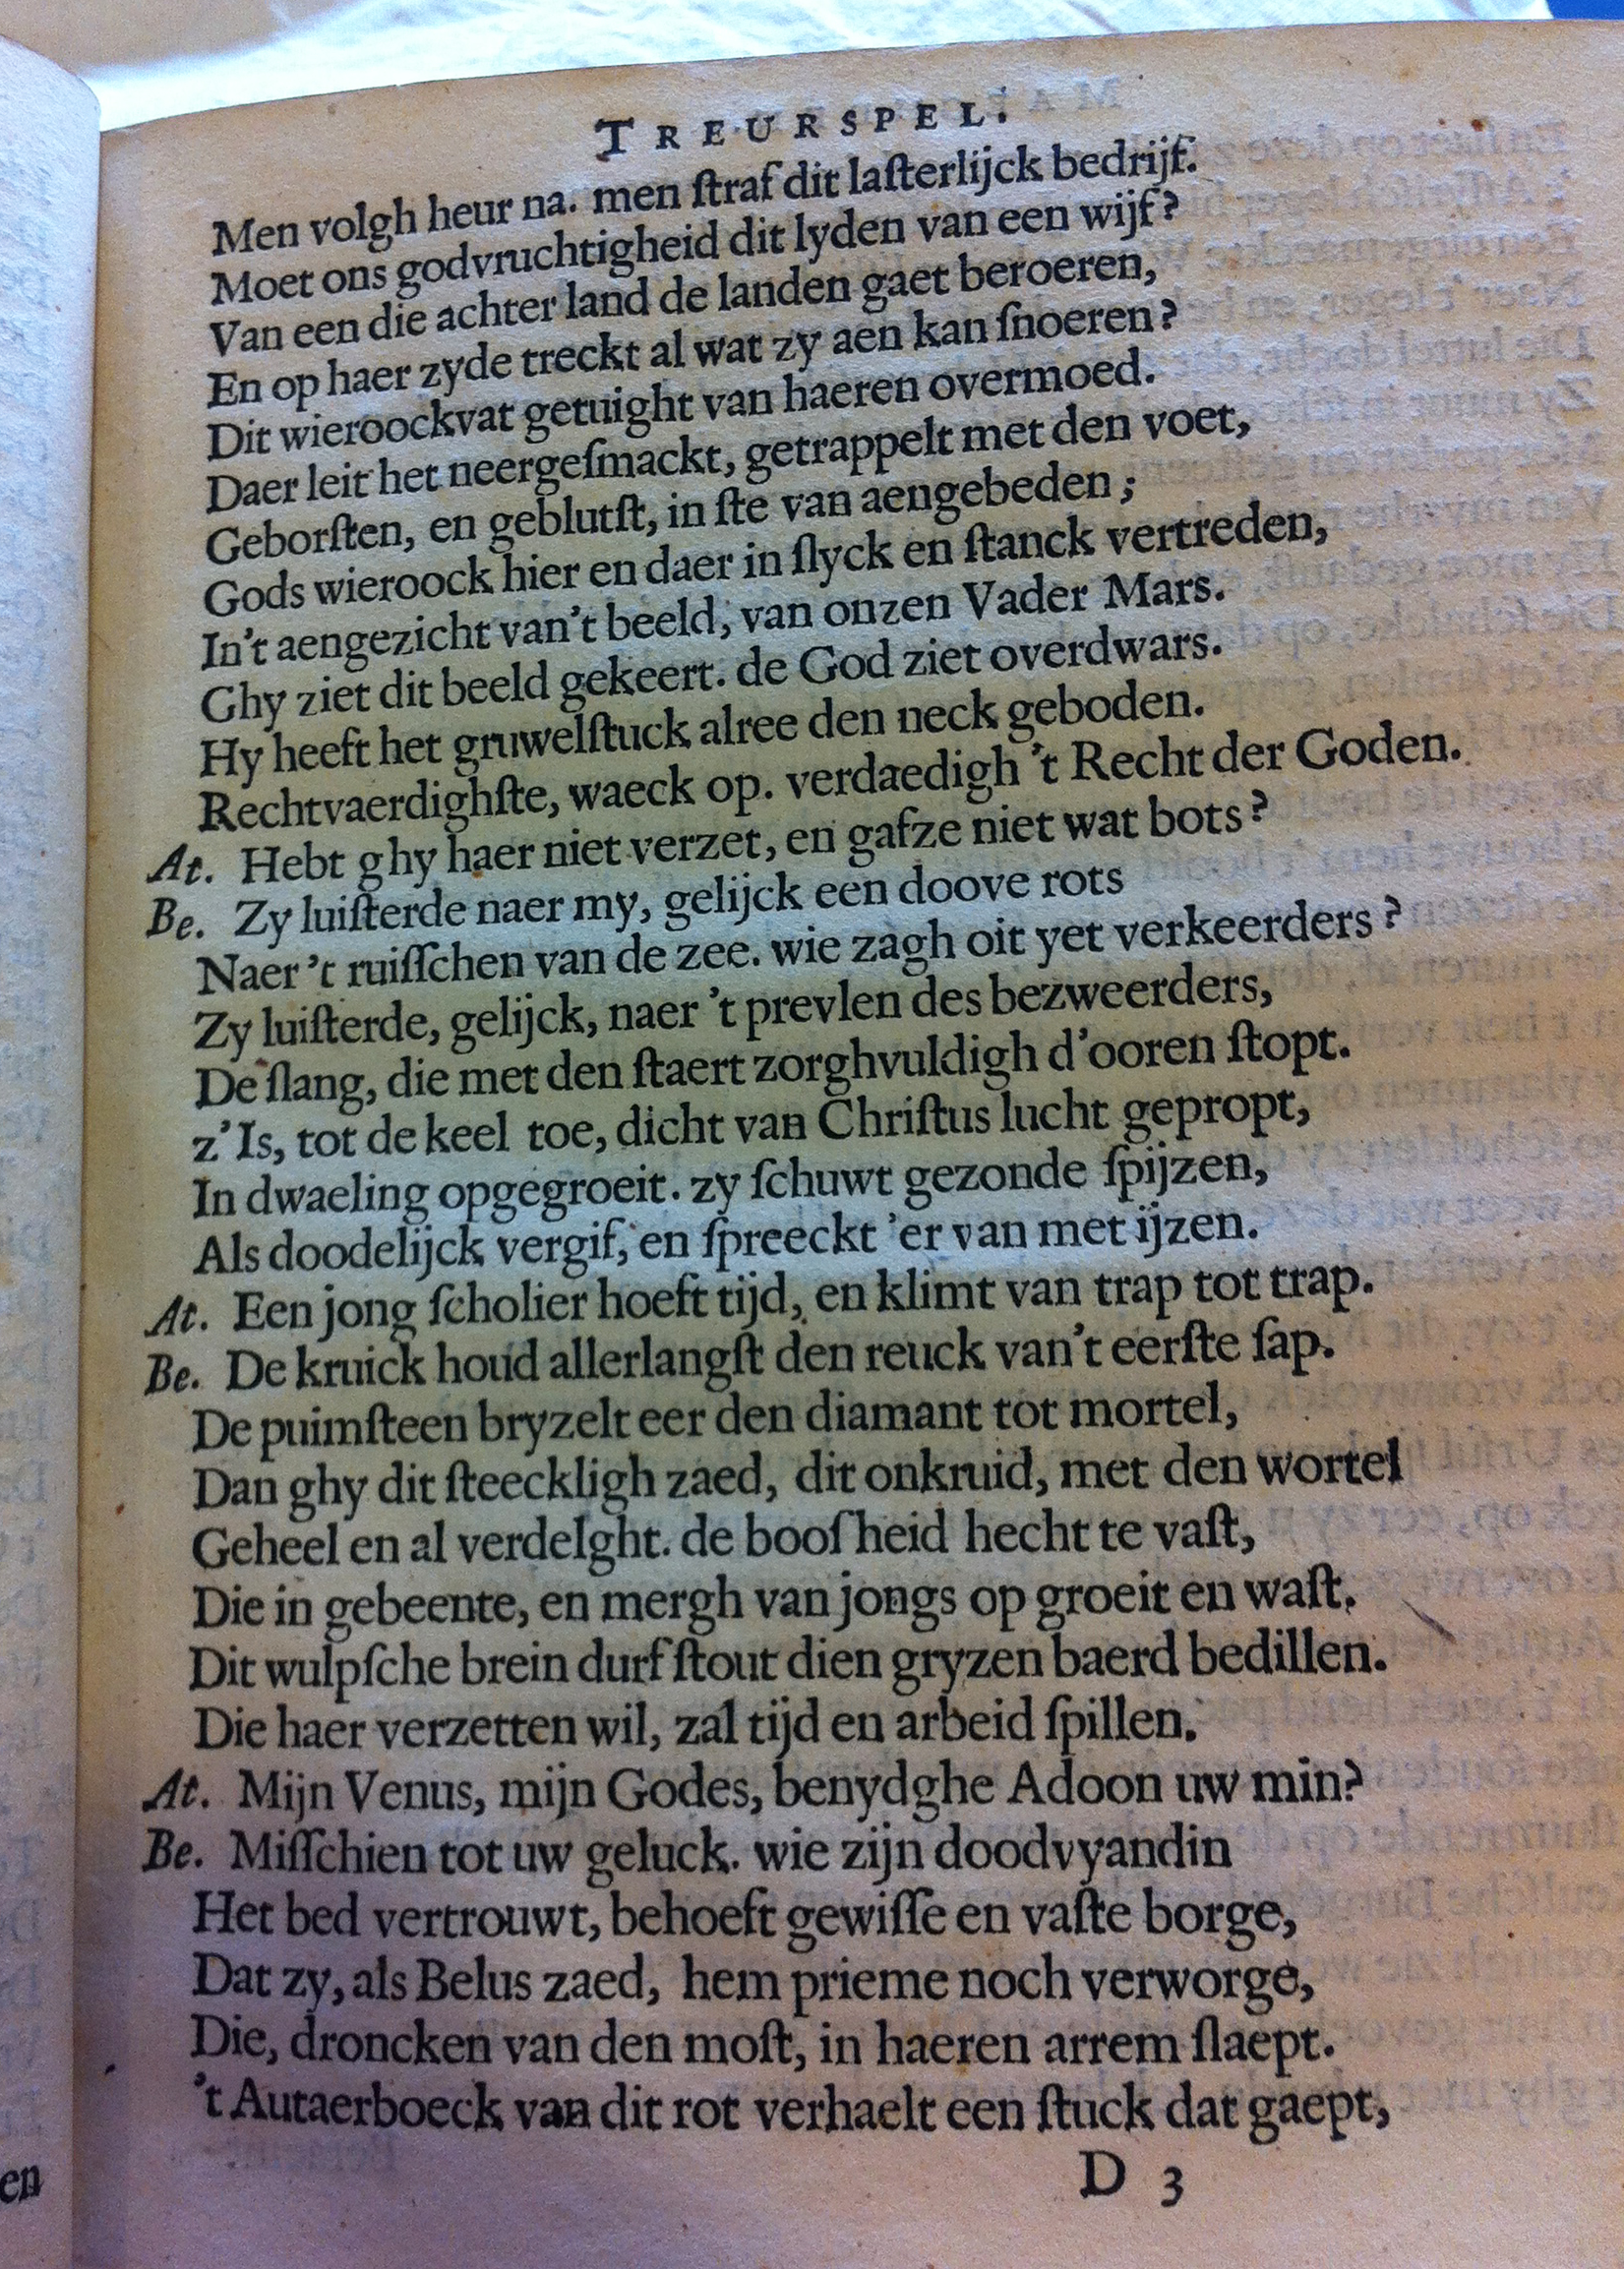 TREURSPEL.
Men volgh heur na. men ſtraf dit laſterlijck bedrijf.
Moet ons godvruchtigheid dit lyden van een wijf?
Van een die achter land de landen gaet beroeren,
En op haer zyde treckt al wat zy aen kan ſnoeren?
Dit wieroockvat getuight van haeren overmoed.
Daer leit het neergeſmackt, getrappelt met den voet,
Geborſten, en geblutſt, in ſte van aengebeden;
Gods wieroock hier en daer in ſlyck en ſtanck vertreden,
In't aengezicht van't beeld, van onzen Vader Mars.
Ghy ziet dit beeld gekeert. de God ziet overdwars.
Hy heeft het gruwelſtuck alree den neck geboden.
Rechtvaerdighſte, waeck op. verdaedigh 't Recht der Goden.
At. Hebt ghy haer niet verzet, en gafze niet wat bots?
Be. Zy luiſterde naer my, gelijck een doove rots
Naer 't ruiſſchen van de zee. wie zagh oit yet verkeerders?
Zy luiſterde, gelijck, naer 't prevlen des bezweerders,
De ſlang, die met den ſtaert zorghvuldigh d'ooren ſtopt.
z'Is, tot de keel toe, dicht van Chriſtus lucht gepropt,
In dwaeling opgegroeit. zy ſchuwt gezonde ſpijzen,
Als doodelijck vergif, en ſpreeckt 'er van met ijzen.
At. Een jong ſcholier hoeft tijd, en klimt van trap tot trap.
Be. De kruick houd allerlangſt den reuck van't eerſte ſap.
De puimſteen bryzelt eer den diamant tot mortel,
Dan ghy dit ſteeckligh zaed, dit onkruid, met den wortel
Geheel en al verdelght. de booſheid hecht te vaſt,
Die in gebeente, en mergh van jongs op groeit en waſt.
Dit wulpſche brein durf ſtout dien gryzen baerd bedillen.
Die haer verzetten wil, zal tijd en arbeid ſpillen.
At. Mijn Venus, mijn Godes, benydghe Adoon uw min?
Be. Miſſchien tot uw geluck. wie zijn doodvyandin
Het bed vertrouwt, behoeft gewiſſe en vaſte borge,
Dat zy, als Belus zaed, hem prieme noch verworge,
Die, droncken van den moſt, in haeren arrem ſlaept.
't Autaerboeck van dit rot verhaelt een ſtuck dat gaept,
D 3
en